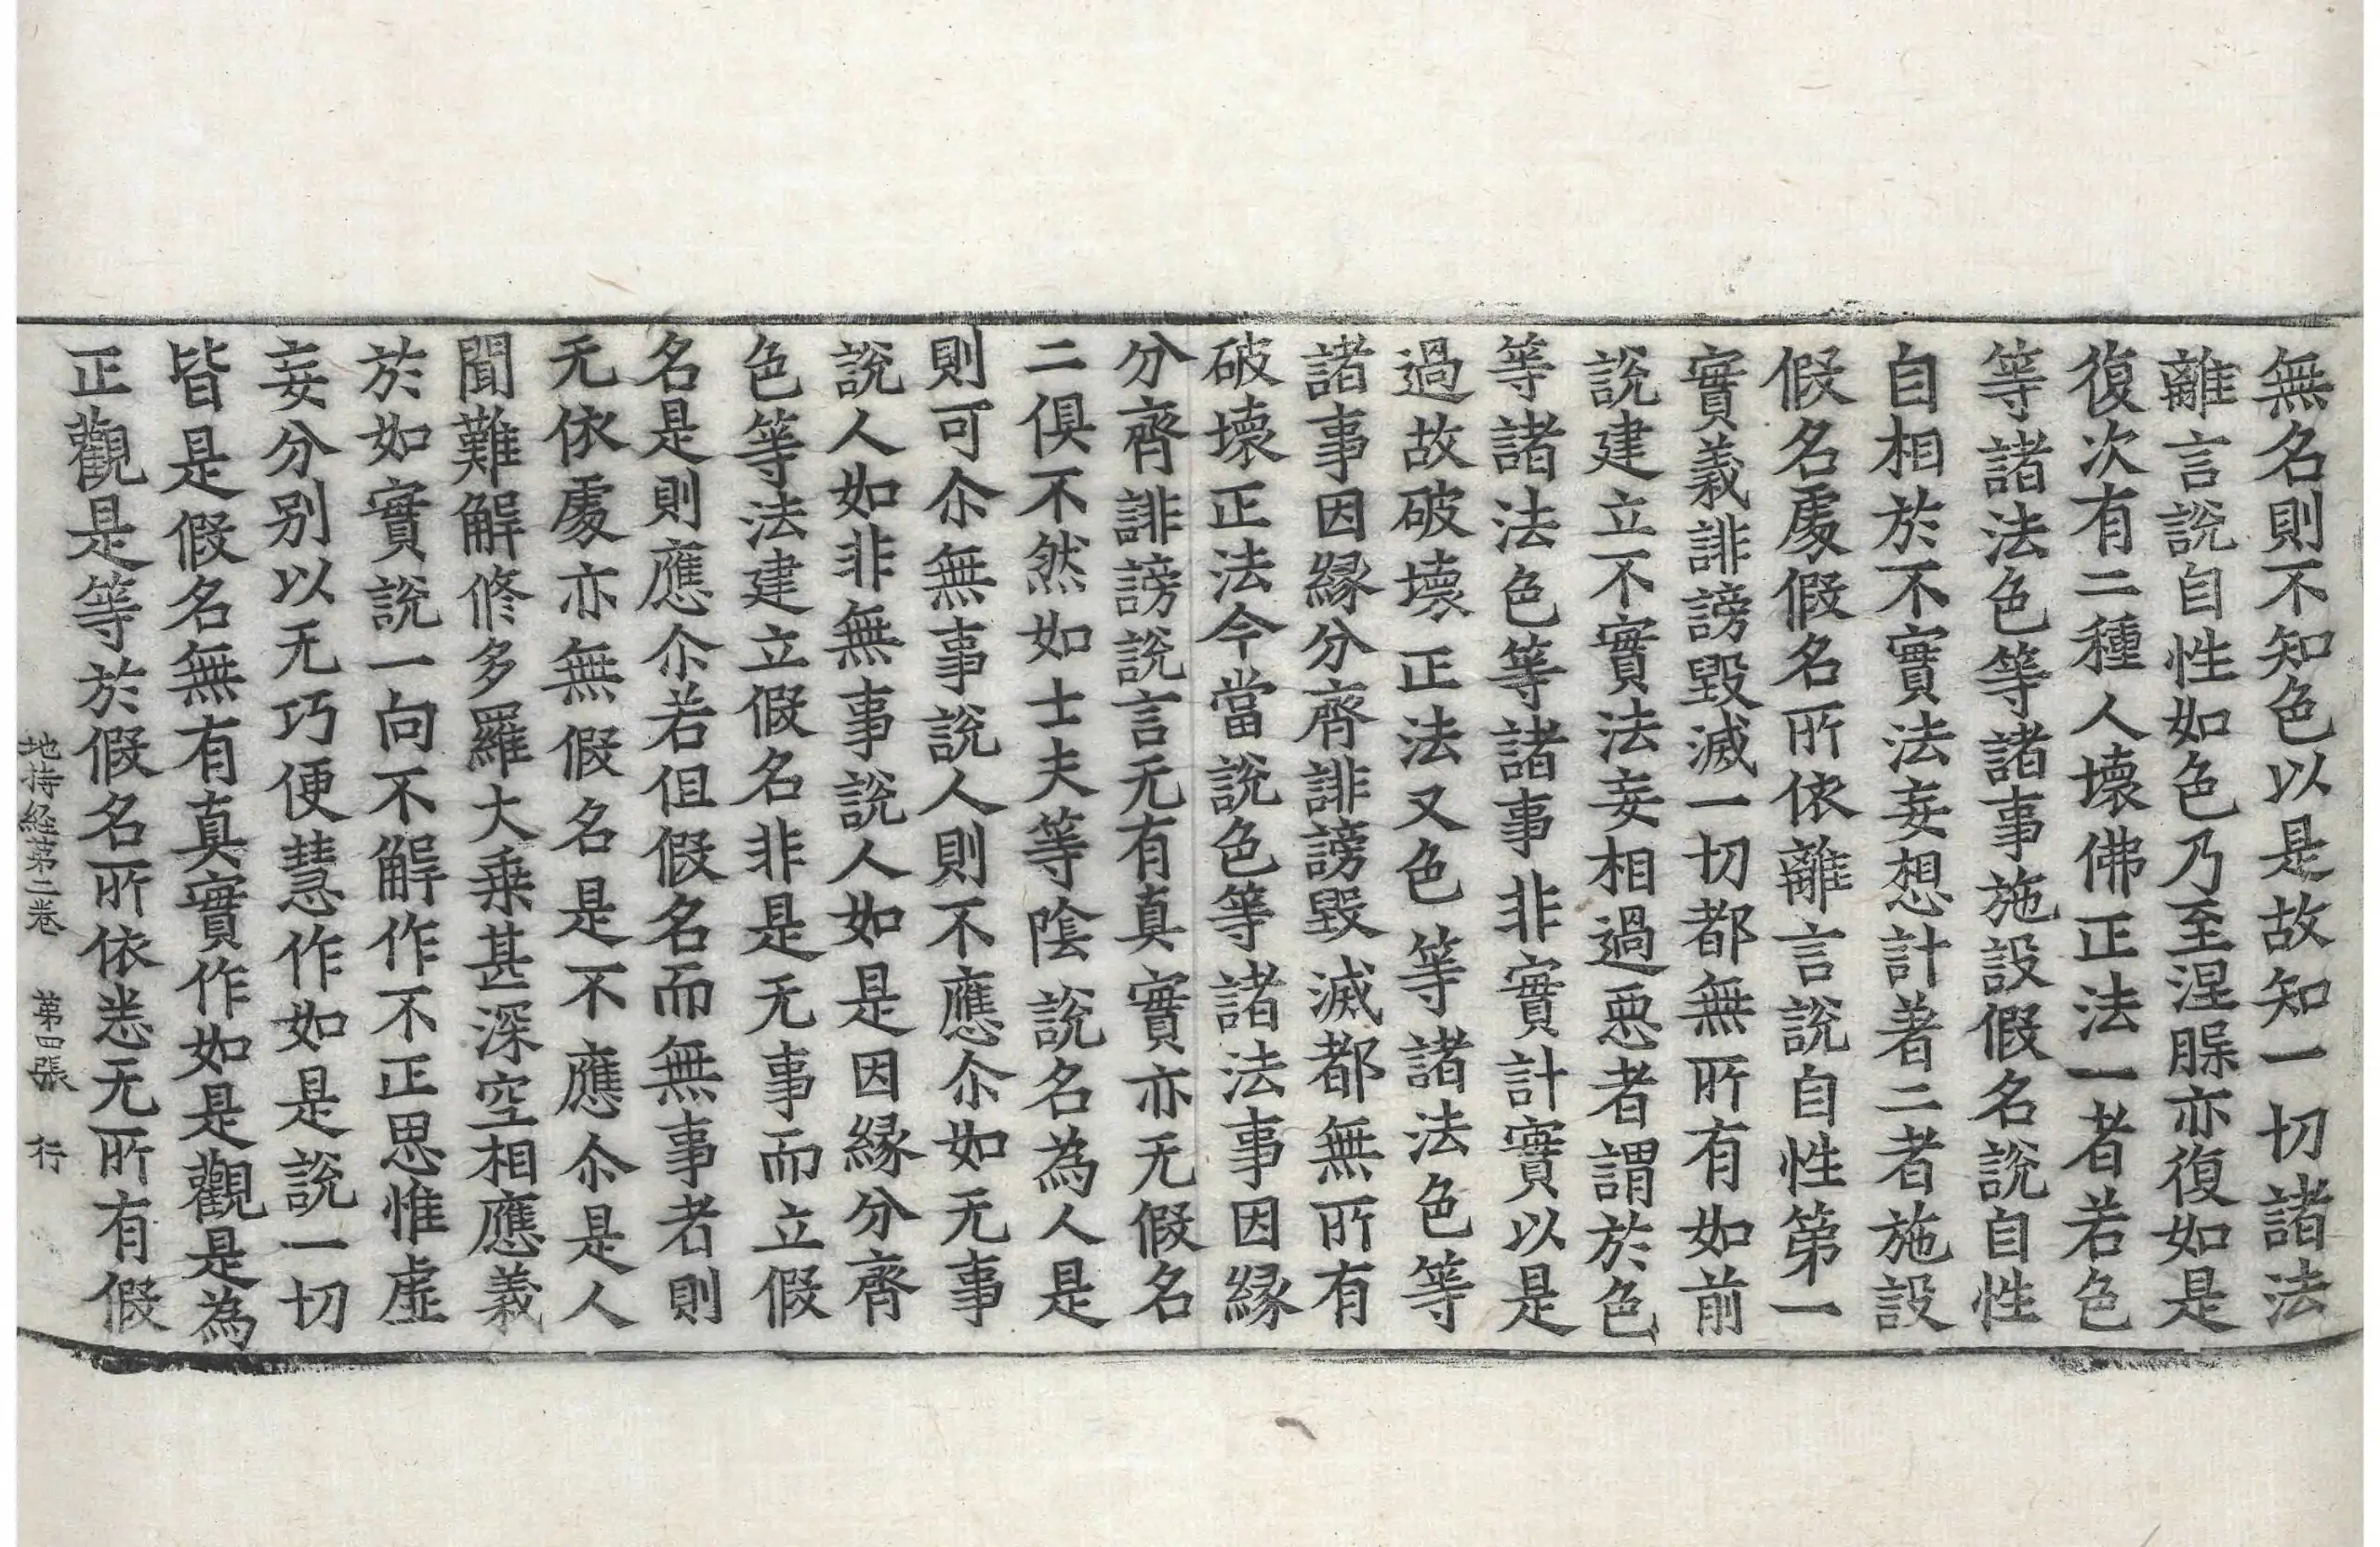 無名則不知色以是故知一切諸法
離言說自性如色乃至涅槃亦復如是
復次有二種人壞佛正法一者若色
等諸法色等諸事施設假名說自性
自相於不實法妄想計著二者施設
假名處假名所依離言說自性第一
實義誹謗毀滅一切都無所有如前
說建立不實法妄相過惡者謂於色
等諸法色等諸事非實計實以是
過故破壞正法又色等諸法色等
諸事因緣分齊誹謗毀滅都無所有
破壞正法今當說色等諸法事因緣
分齊誹謗說言无有真實亦无假名
二俱不然如士夫等陰說名為人是
則可尒無事說人則不應尒如无事
說人如非無事說人如是因緣分齊
色等法建立假名非是无事而立假
名是則應尒若但假名而無事者則
无依處亦無假名是不應尒是人
聞難解修多羅大乘甚深空相應義
於如實說一向不解作不正思惟虛
妄分別以无巧便慧作如是說一切
皆是假名無有真實作如是觀是為
正觀是等於假名所依悉无所有假
地持経第二卷 第四張 行